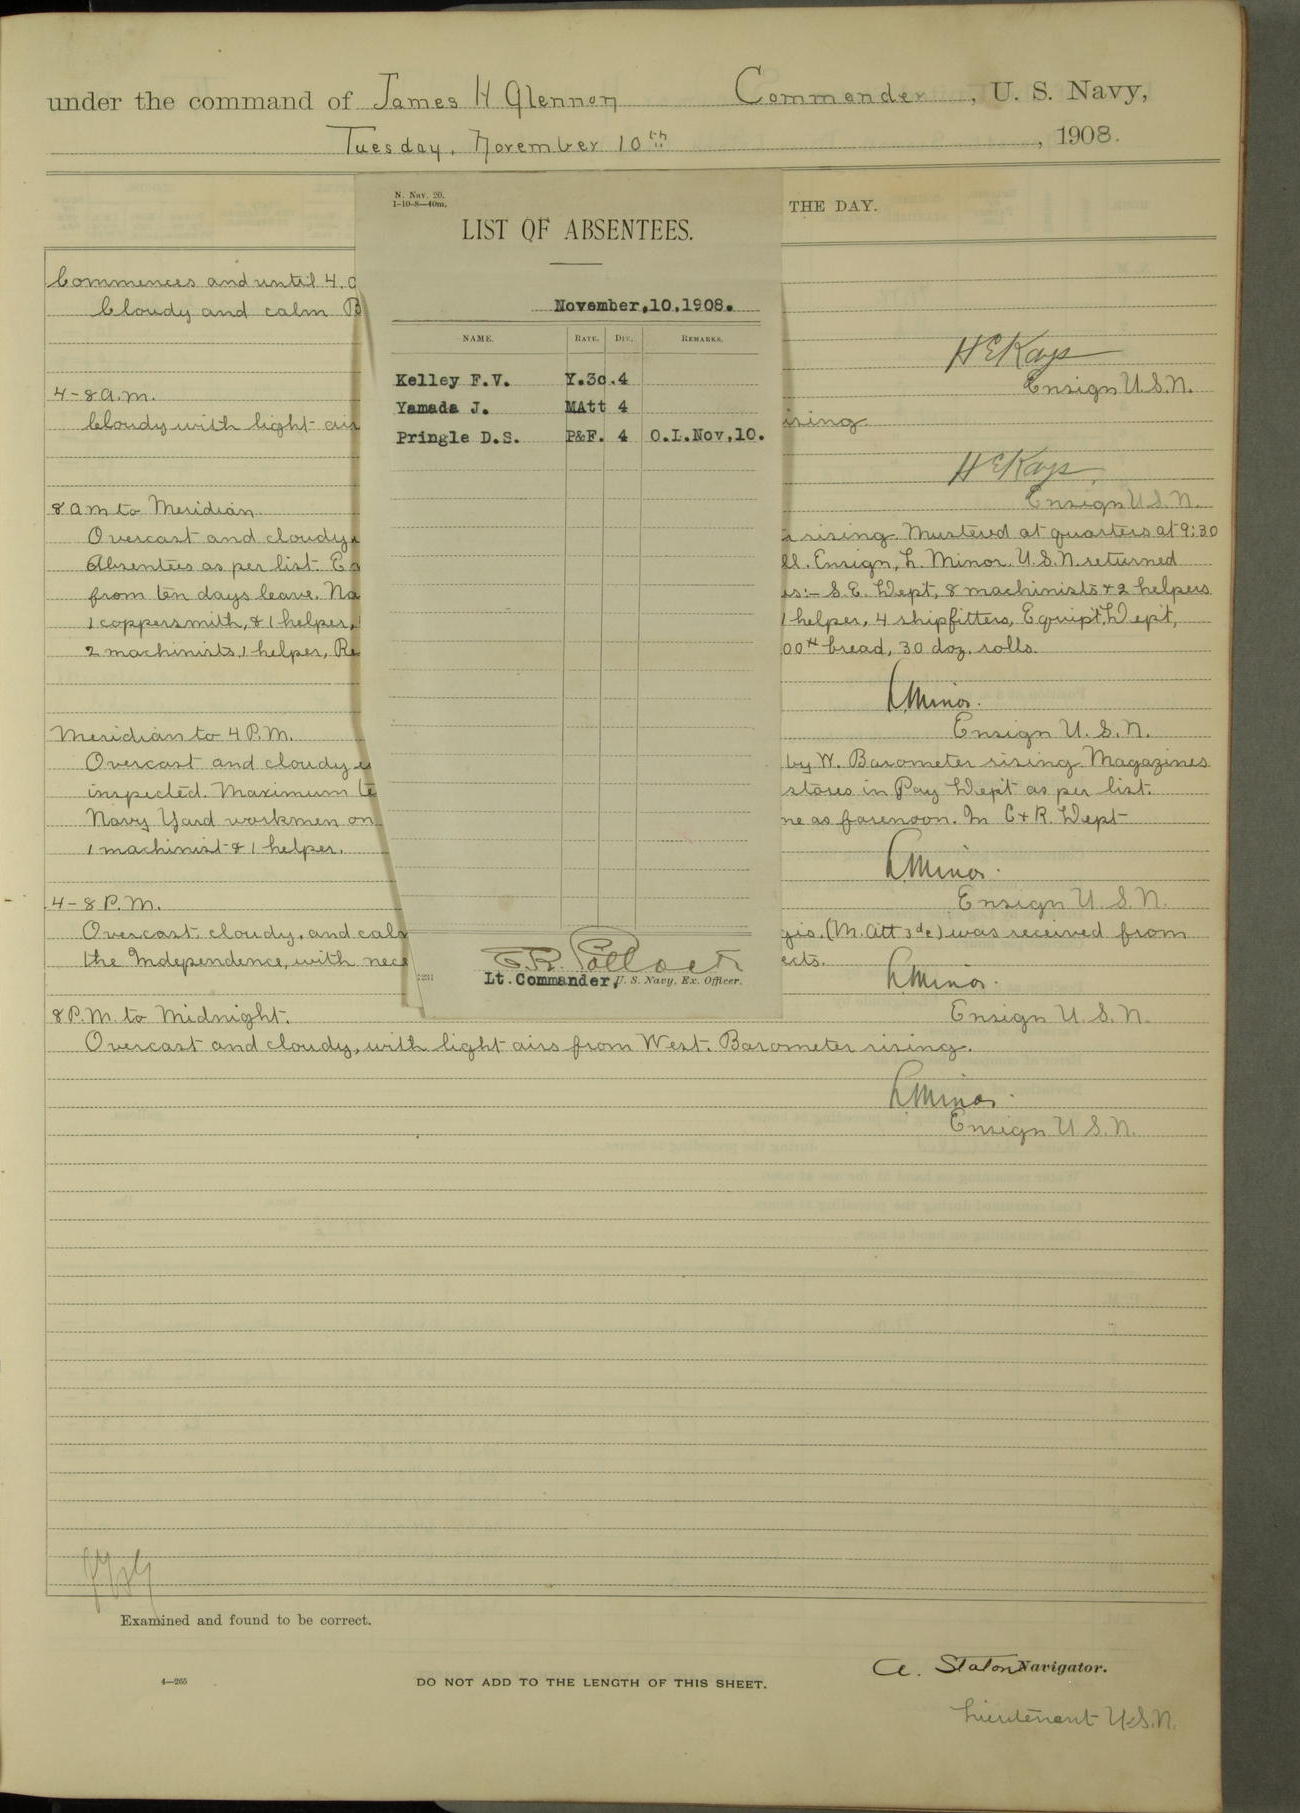 under the command of James H Glennon Commander, U. S. Navy,
Tuesday, November 10th, 1908.
THE DAY.
N. Nav. 20.
1-10-8—40m.
LIST OF ABSENTEES.
November,10,1908.
NAME. RATE. DIV. REMARKS.
Kelley F.V. Y.3c.4
Yamada J. MAtt 4
Pringle D.S. P&F. 4 O.L.Nov,10.
Lt. Commander, U. S. Navy, Ex. Officer.
Commences and until 4.
Cloudy and calm B
H E Kays
Ensign U.S.N.
4-8 a.m.
Cloudy with light airs
rising
H E Kays
Ensign U.S.N.
8 a m to Meridian
Overcast and cloudy rising. Mustered at quarters at 9:30
Absentees as per list. Ensign, L. Minor U.S.N. returned
from ten days leave. S.E. Dept, 8 machinists & 2 helpers
1 coppersmith, & 1 helper, 1 helper, 4 shipfitters, Equipt, Dept,
2 machinists, 1 helper, bread, 30 doz. rolls.
L. Minor.
Ensign U. S. N.
Meridian to 4 P.M.
Overcast and cloudy by W. Barometer rising. Magazines
inspected. Maximum stores in Pay Dept as per list.
Navy Yard workmen on as forenoon. In C & R. Dept
1 machinist & 1 helper.
L. Minor.
Ensign U. S. N.
4-8 P.M.
Overcast, cloudy, and calm (M. Att 3dc) was received from
the Independence, with
L. Minor.
Ensign U. S. N.
8 P.M. to Midnight.
Overcast and cloudy, with light airs from West. Barometer rising.
L. Minor.
Ensign U. S. N.
Examined and found to be correct.
A. Staton Navigator.
4—265
DO NOT ADD TO THE LENGTH OF THIS SHEET.
Lieutenant U.S.N.